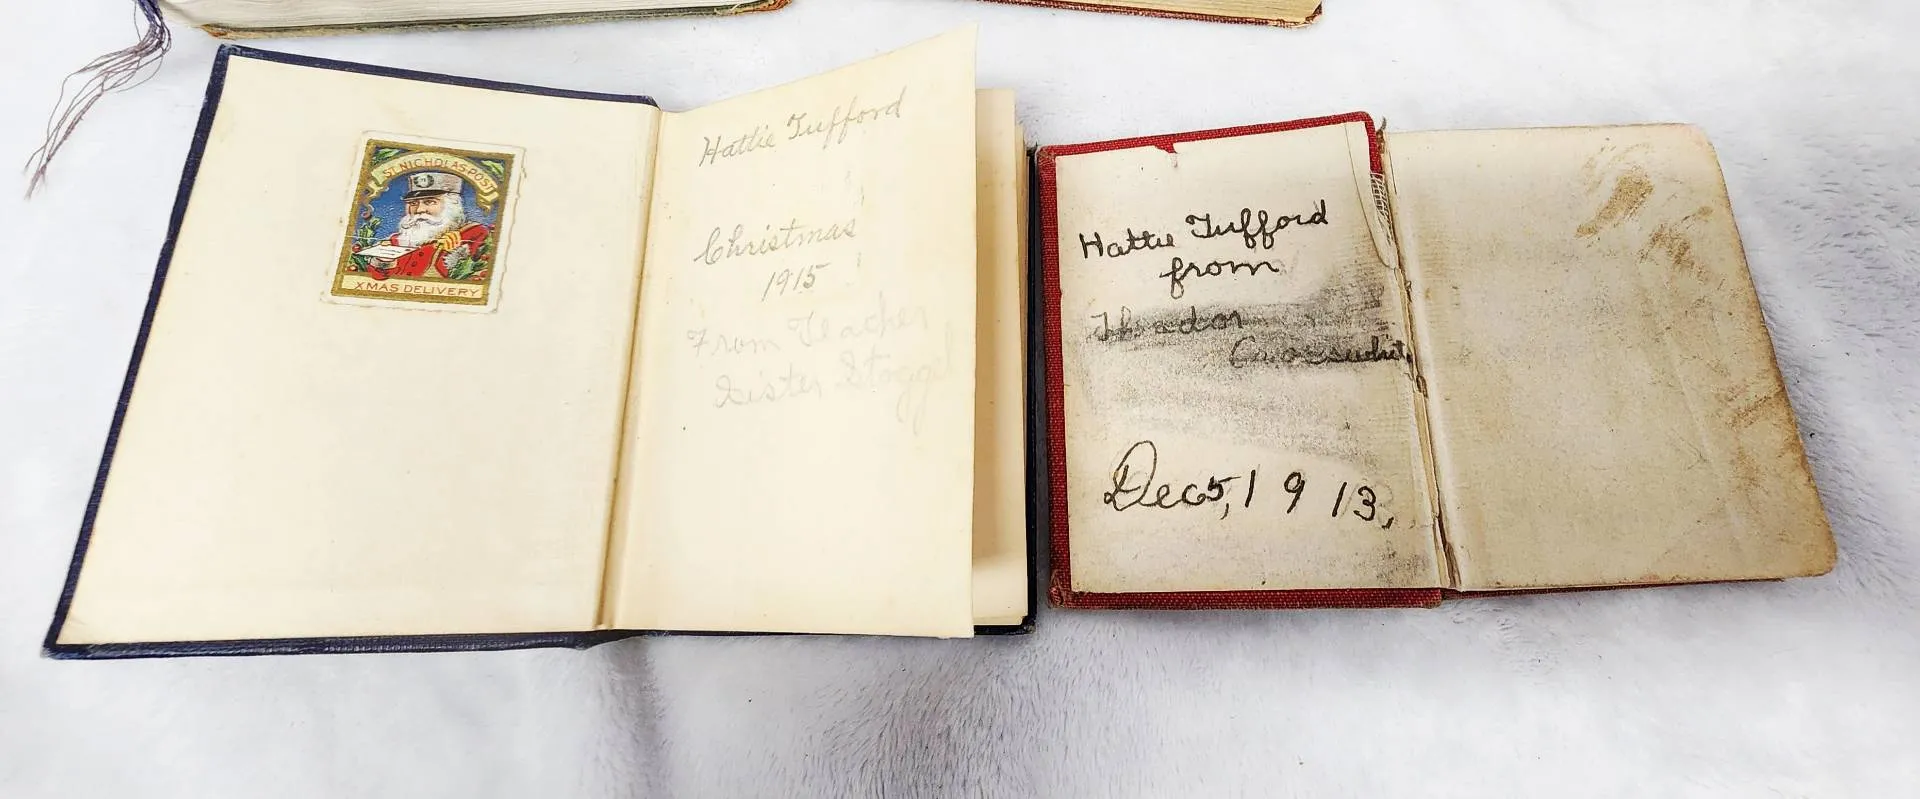 ST. NICHOLAS POST
XMAS DELIVERY
Hattie Tufford
Christmas
1915
From Teacher
Sister
Hattie Tufford
from
Dec 5, 1913,